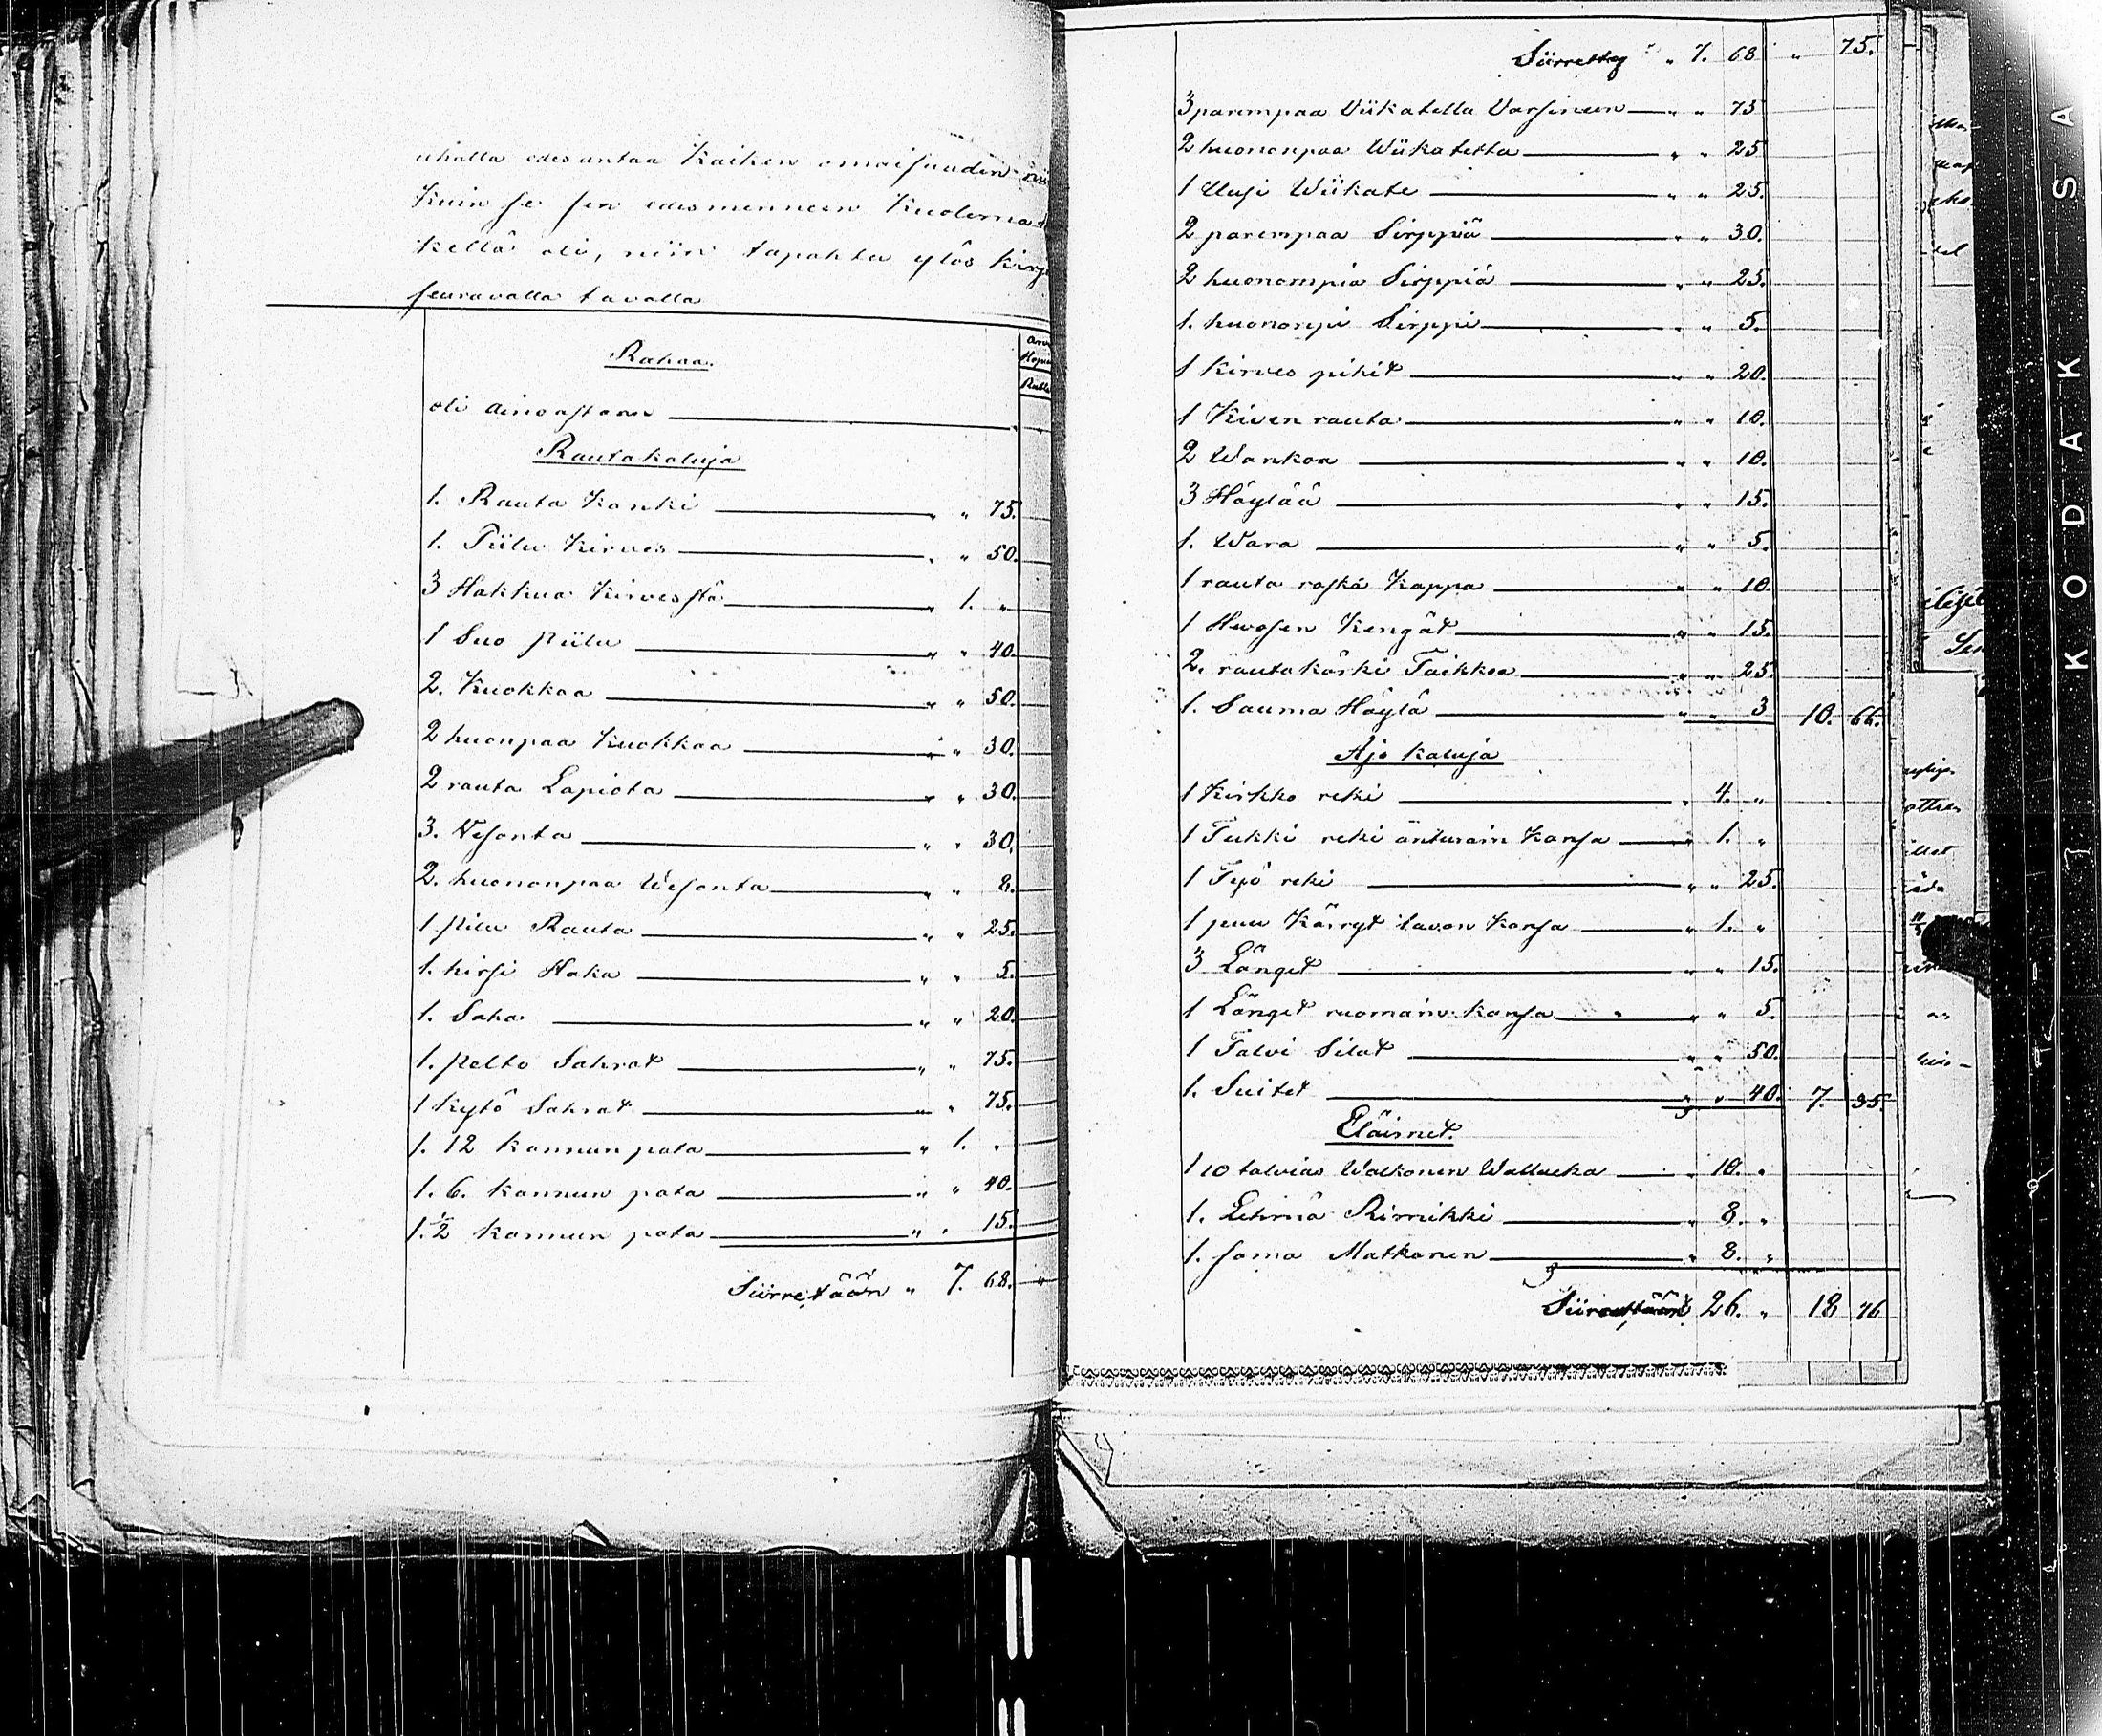 uhalla edesantaa Kaiken omaisuuden
Kuin se sen edesmenneen Kuolema
kellä oli, niin tapahtu ylös kirj
seuravalla tavalla
Rahaa.
oli ainoastans
Rautakaluja
1. Rauta Kanki " " 75.
1. Piilu Kirves " " 50.
3 Hakkua Kirvestä " 1. "
1 Suo piilu " " 40.
2. Kuokkaa " " 50.
2 huonpaa Kuokkaa " " 30.
2 rauta Lapiota " " 30.
3. Vesonta " " 30.
2. huononpaa Wesonta " " 8.
1 pilu Rauta " " 25.
1. hirsi Haka " " 5.
1. Saha " " 20.
1. pelto Sahrat " " 75.
1 Kytö Sahrat " " 75.
1. 12 kannun pata " 1. "
1. 6. kannun pata " " 40.
1. ½ kannun pata " " 15.
Siirretään " 7. 68. "
Siirretty " 7. 68 " 75.
3 parempaa Viikatetta Varsineen " " 75
2 huononpaa Wiikatetta " " 25
1 Uusi Wiikate " " 25.
2 parempaa Sirppiä " " 30.
2 huonompia Sirppiä " " 25.
1. huononpi Sirppi " " 5.
1 Kirves pihit " " 20.
1 Kiven rauta " " 10.
2 Wankaa " " 10.
3 Höylää " " 15.
1. Wara " " 5.
1 rauta raskä Kappa " " 10.
1 Hevosen Kengät " " 15.
2. rautakärki Taikkoa " " 25.
1. Sauma Höylä " " 3 10. 66.
Ajo kaluja
1 Kirkko reki " 4. "
1 Tukki reki änturain kansa " 1. "
1 Työ reki " " 25.
1 puu Kärryt lavan kansa " 1. "
3 Länget " " 15.
1 Länget ruomain kansa " " 5.
1 Talvi Silat " " 50.
1. Suitet " " 40. 7. 35.
Eläimet.
1 10 talvias Walkonen Wallacka " 10. "
1. Lehmä Rimikki " 8. "
1. sama Matkonen " 8. "
Siirretään 26. " 18 76
KODAK SA